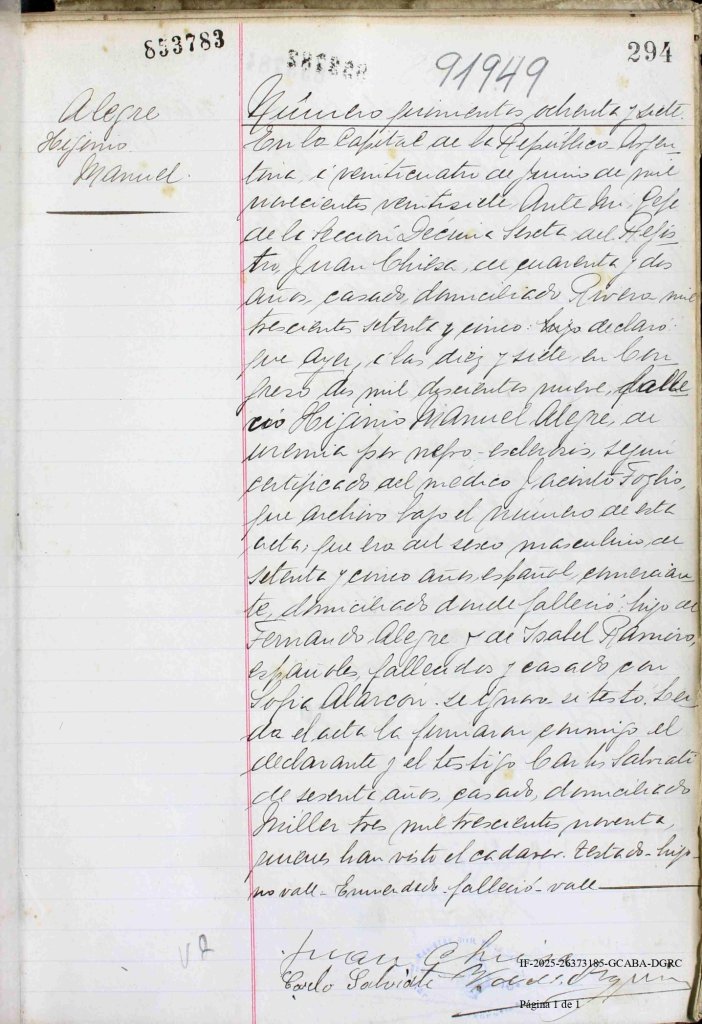 853783
294
91949
Alegre
Higinio
Manuel.
Número quinientos ochenta y siete.
En la Capital de la República Argen-
tina, a veinticuatro de Junio de mil
novecientos veintisiete Ante mi, Jefe
de la Sección Décima Sexta del Regis-
tro, Juan Chiesa, de cuarenta y dos
años, casado, domiciliado Rivera mil
trescientos setenta y cinco: hijo declaró:
que ayer, a las diez y siete, en Con-
greso dos mil doscientos nueve, falle-
ció Higinio Manuel Alegre, de
uremia por nefro-esclerosis, según
certificado del médico Jacinto
que archivo bajo el número de esta
acta; que era del sexo masculino, de
setenta y cinco años, español, comercian-
te, domiciliado donde falleció: hijo de
Fernando Alegre y de Isabel Ramiro,
españoles, fallecidos y casado con
Sofia Alarcón. se ignora si testó. Leí-
da el acta la firmaron conmigo el
declarante y el testigo Carlos Salviati
de sesenta años, casado, domiciliado
Miller tres mil trescientos noventa,
quienes han visto el cadaver. Testado-hijo-
no vale-Enmendado-falleció-vale
Juan Chiesa
IF-2025-26373185-GCABA-DGRC
Carlo Salviati
Página 1 de 1